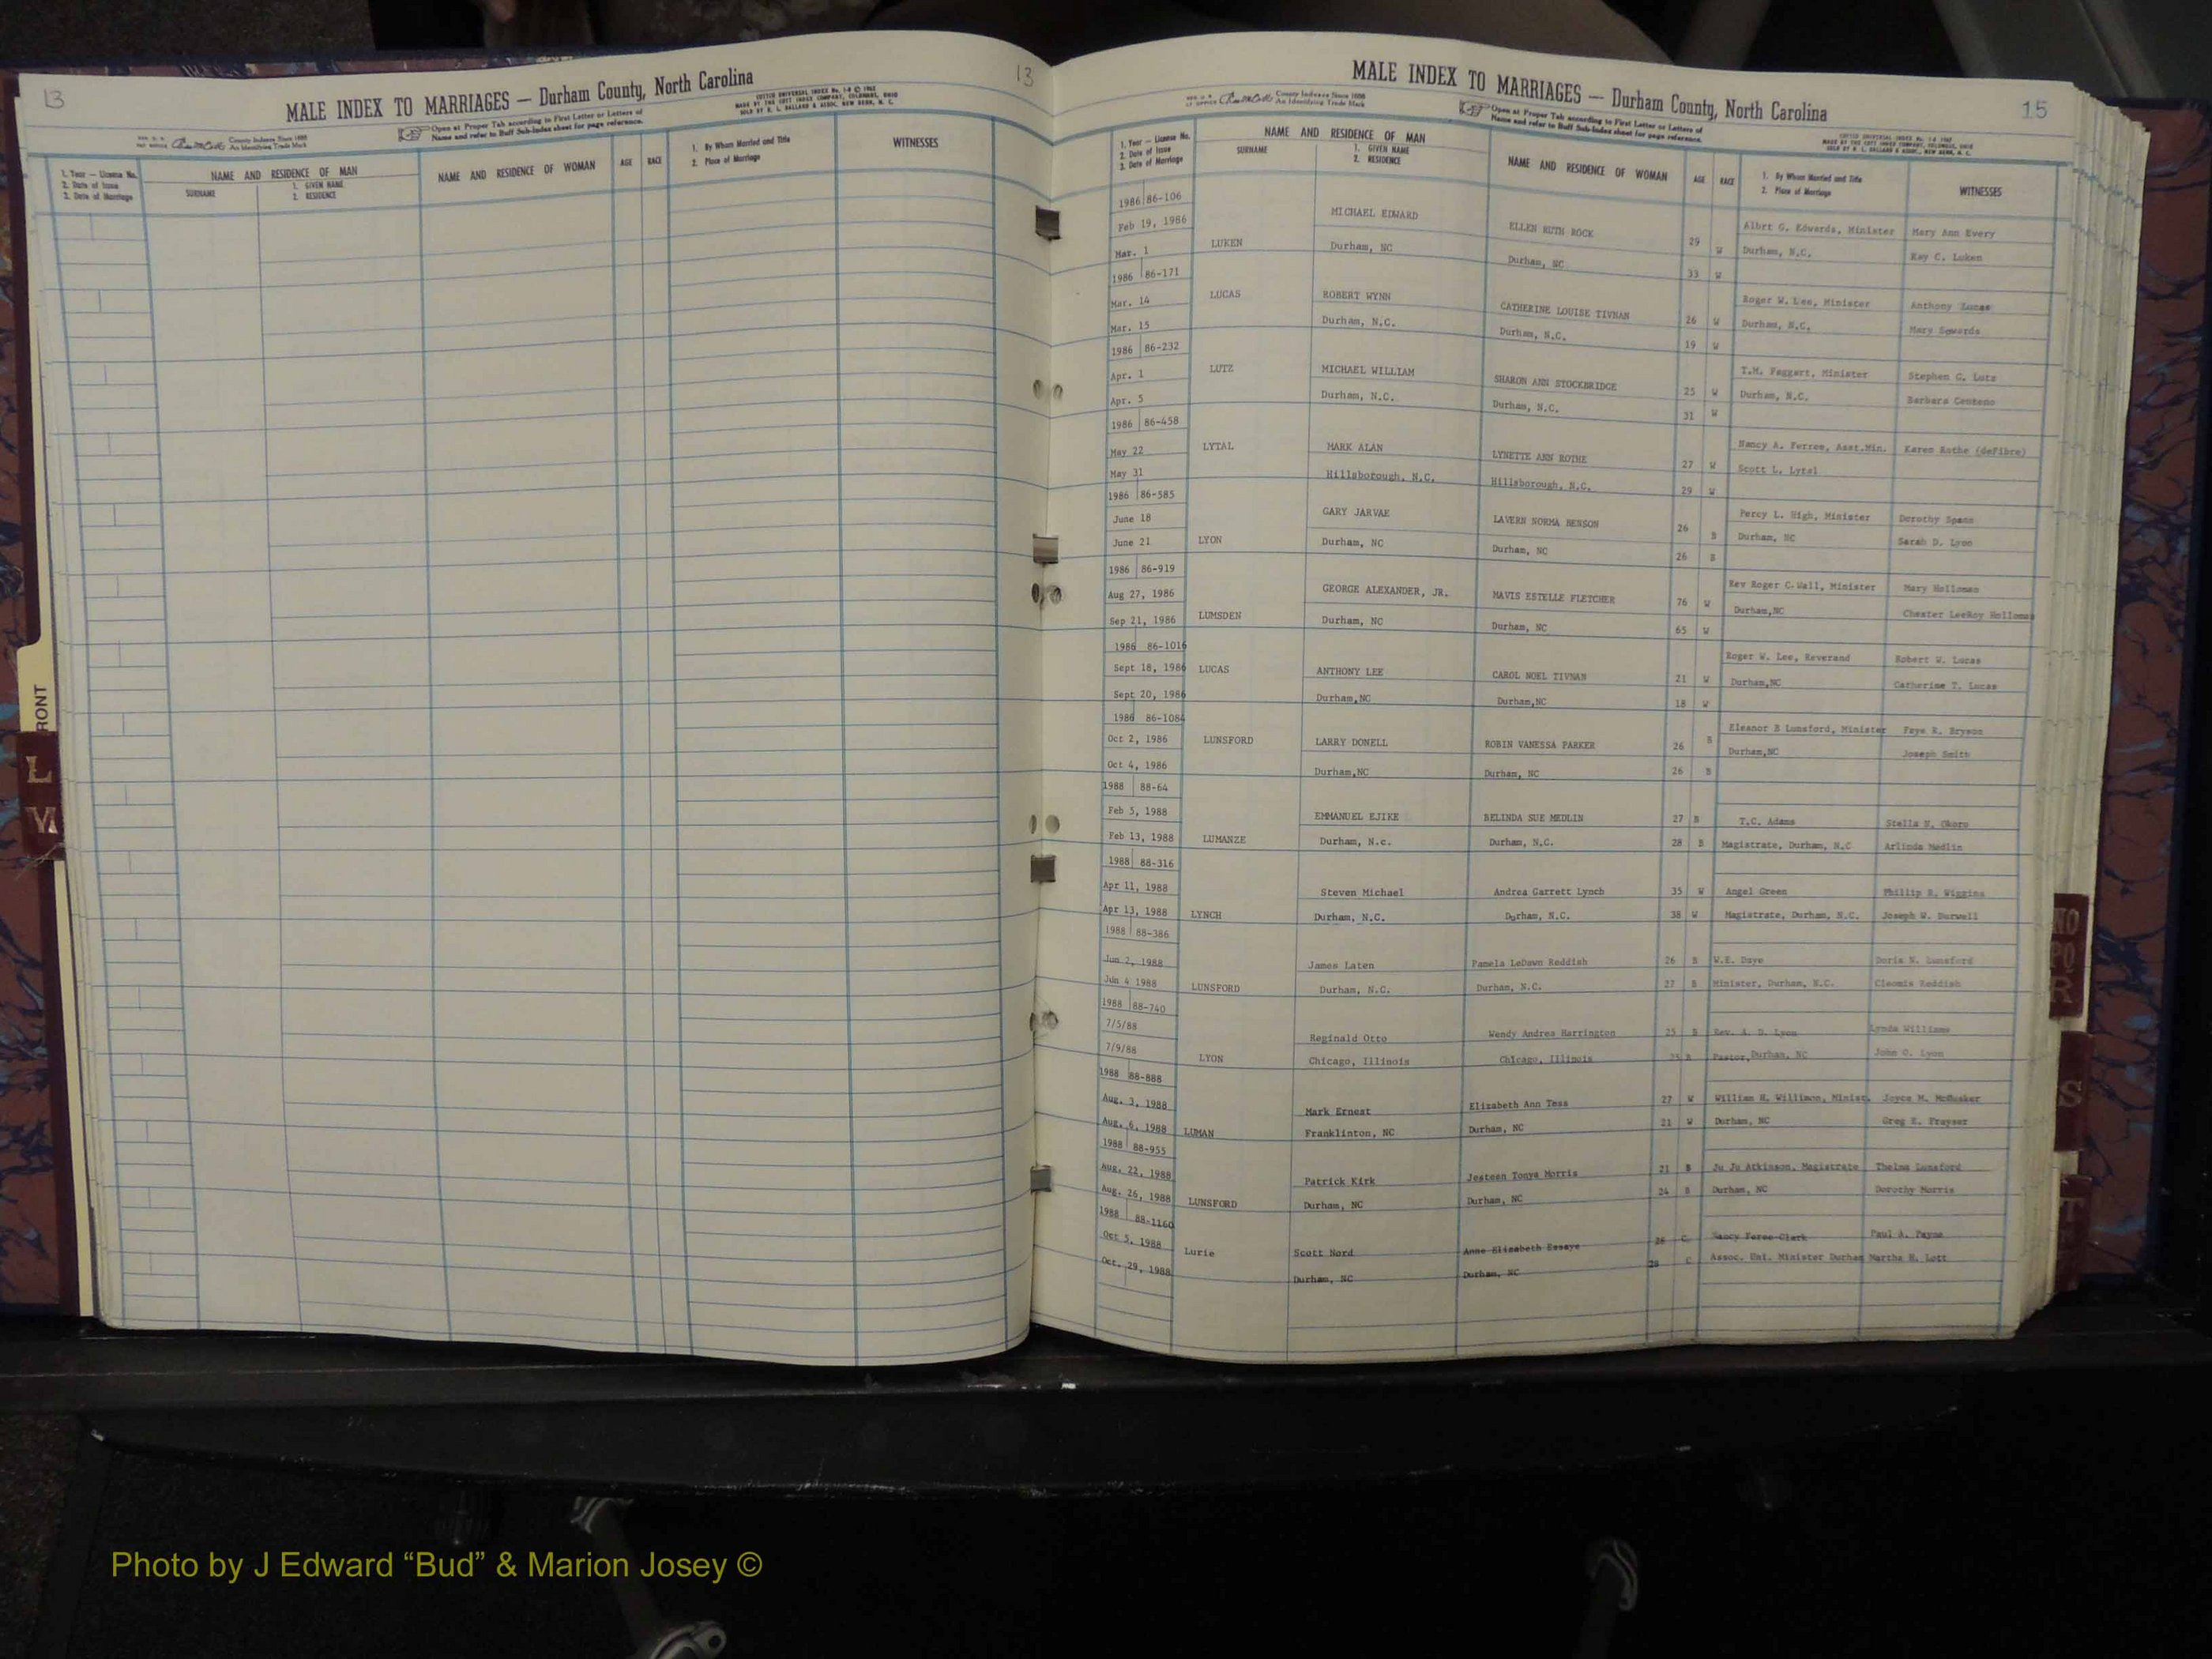 13
13
MALE INDEX TO MARRIAGES — Durham County, North Carolina
County Indexes Since 1888
An Identifying Trade Mark
Open at Proper Tab according to First Letter or Letters of
Name and refer to Buff Sub-Index sheet for page reference.
1. Year — License No.
2. Date of Issue
3. Date of Marriage
NAME AND RESIDENCE OF MAN
SURNAME
1. GIVEN NAME
2. RESIDENCE
NAME AND RESIDENCE OF WOMAN
AGE
RACE
1. By Whom Married and Title
2. Place of Marriage
WITNESSES
MALE INDEX TO MARRIAGES — Durham County, North Carolina
15
County Indexes Since 1888
An Identifying Trade Mark
Open at Proper Tab according to First Letter or Letters of
Name and refer to Buff Sub-Index sheet for page reference.
1. Year — License No.
2. Date of Issue
3. Date of Marriage
NAME AND RESIDENCE OF MAN
SURNAME
1. GIVEN NAME
2. RESIDENCE
NAME AND RESIDENCE OF WOMAN
AGE
RACE
1. By Whom Married and Title
2. Place of Marriage
WITNESSES
1986 86-106
Feb 19, 1986 MICHAEL EDWARD ELLEN RUTH ROCK 29 W Albrt G. Edwards, Minister Mary Ann Every
Mar. 1 LUKEN Durham, NC Durham, NC 33 W Durham, N.C. Ray C. Luken
1986 86-171
Mar. 14 LUCAS ROBERT WYNN CATHERINE LOUISE TIVNAN 26 W Roger W. Lee, Minister Anthony Lucas
Mar. 15 Durham, N.C. Durham, N.C. 19 W Durham, N.C. Mary Edwards
1986 86-232
Apr. 1 LUTZ MICHAEL WILLIAM SHARON ANN STOCKBRIDGE 25 W T.M. Faggart, Minister Stephen G. Lutz
Apr. 5 Durham, N.C. Durham, N.C. 31 W Durham, N.C. Barbara Centeno
1986 86-458
May 22 LYTAL MARK ALAN LYNETTE ANN ROTHE 27 W Nancy A. Ferree, Asst.Min. Karen Rothe (deFibre)
May 31 Hillsborough, N.C. Hillsborough, N.C. 29 W Scott L. Lytal
1986 86-585
June 18 GARY JARVAE LAVERN NORMA BENSON 26 B Percy L. High, Minister Dorothy Spann
June 21 LYON Durham, NC Durham, NC 26 B Durham, NC Sarah D. Lyon
1986 86-919
Aug 27, 1986 GEORGE ALEXANDER, JR. MAVIS ESTELLE FLETCHER 76 W Rev Roger C.Wall, Minister Mary Holloman
Sep 21, 1986 LUMSDEN Durham, NC Durham, NC 65 W Durham,NC Chester LeeRoy Holloman
1986 86-1016
Sept 18, 1986 LUCAS ANTHONY LEE CAROL NOEL TIVNAN 21 W Roger W. Lee, Reverand Robert W. Lucas
Sept 20, 1986 Durham,NC Durham,NC 18 W Durham,NC Catherine T. Lucas
1986 86-1084
Oct 2, 1986 LUNSFORD LARRY DONELL ROBIN VANESSA PARKER 26 B Eleanor B Lunsford, Minister Faye R. Bryson
Oct 4, 1986 Durham,NC Durham, NC 26 B Durham,NC Joseph Smith
1988 88-64
Feb 5, 1988 EMMANUEL EJIKE BELINDA SUE MEDLIN 27 B T.C. Adams Stella N. Okoro
Feb 13, 1988 LUMANZE Durham, N.c. Durham, N.C. 28 B Magistrate, Durham, N.C Arlinda Medlin
1988 88-316
Apr 11, 1988 Steven Michael Andrea Garrett Lynch 35 W Angel Green Phillip R. Wiggins
Apr 13, 1988 LYNCH Durham, N.C. Durham, N.C. 38 W Magistrate, Durham, N.C. Joseph W. Burwell
1988 88-386
Jun 2, 1988 James Laten Pamela LeDawn Reddish 26 B W.E. Daye Doris N. Lunsford
Jun 4 1988 LUNSFORD Durham, N.C. Durham, N.C. 27 B Minister, Durham, N.C. Cleomis Reddish
1988 88-740
7/5/88 Reginald Otto Wendy Andrea Harrington 25 B Rev. A. D. Lyon Lynda Williams
7/9/88 LYON Chicago, Illinois Chicago, Illinois 25 B Pastor, Durham, NC John O. Lyon
1988 88-888
Aug. 3, 1988 Mark Ernest Elizabeth Ann Tess 27 W William H. Willimon, Minist. Joyce M. McHusker
Aug. 6, 1988 LUMAN Franklinton, NC Durham, NC 21 W Durham, NC Greg E. Freyser
1988 88-955
Aug. 22, 1988 Patrick Kirk Jesteen Tonya Morris 21 B Ju Ju Atkinson, Magistrate Thelma Lunsford
Aug. 26, 1988 LUNSFORD Durham, NC Durham, NC 24 B Durham, NC Dorothy Morris
1988 88-1160
Oct 5, 1988 Lurie Scott Nord Anne Elizabeth Essaye 26 C Nancy Feree-Clark Paul A. Payne
Oct. 29, 1988 Durham, NC Durham, NC 28 C Assoc. Uni. Minister Durham Martha H. Lott
RONT
L
NO
PQ
R
S
T
Photo by J Edward “Bud” & Marion Josey ©